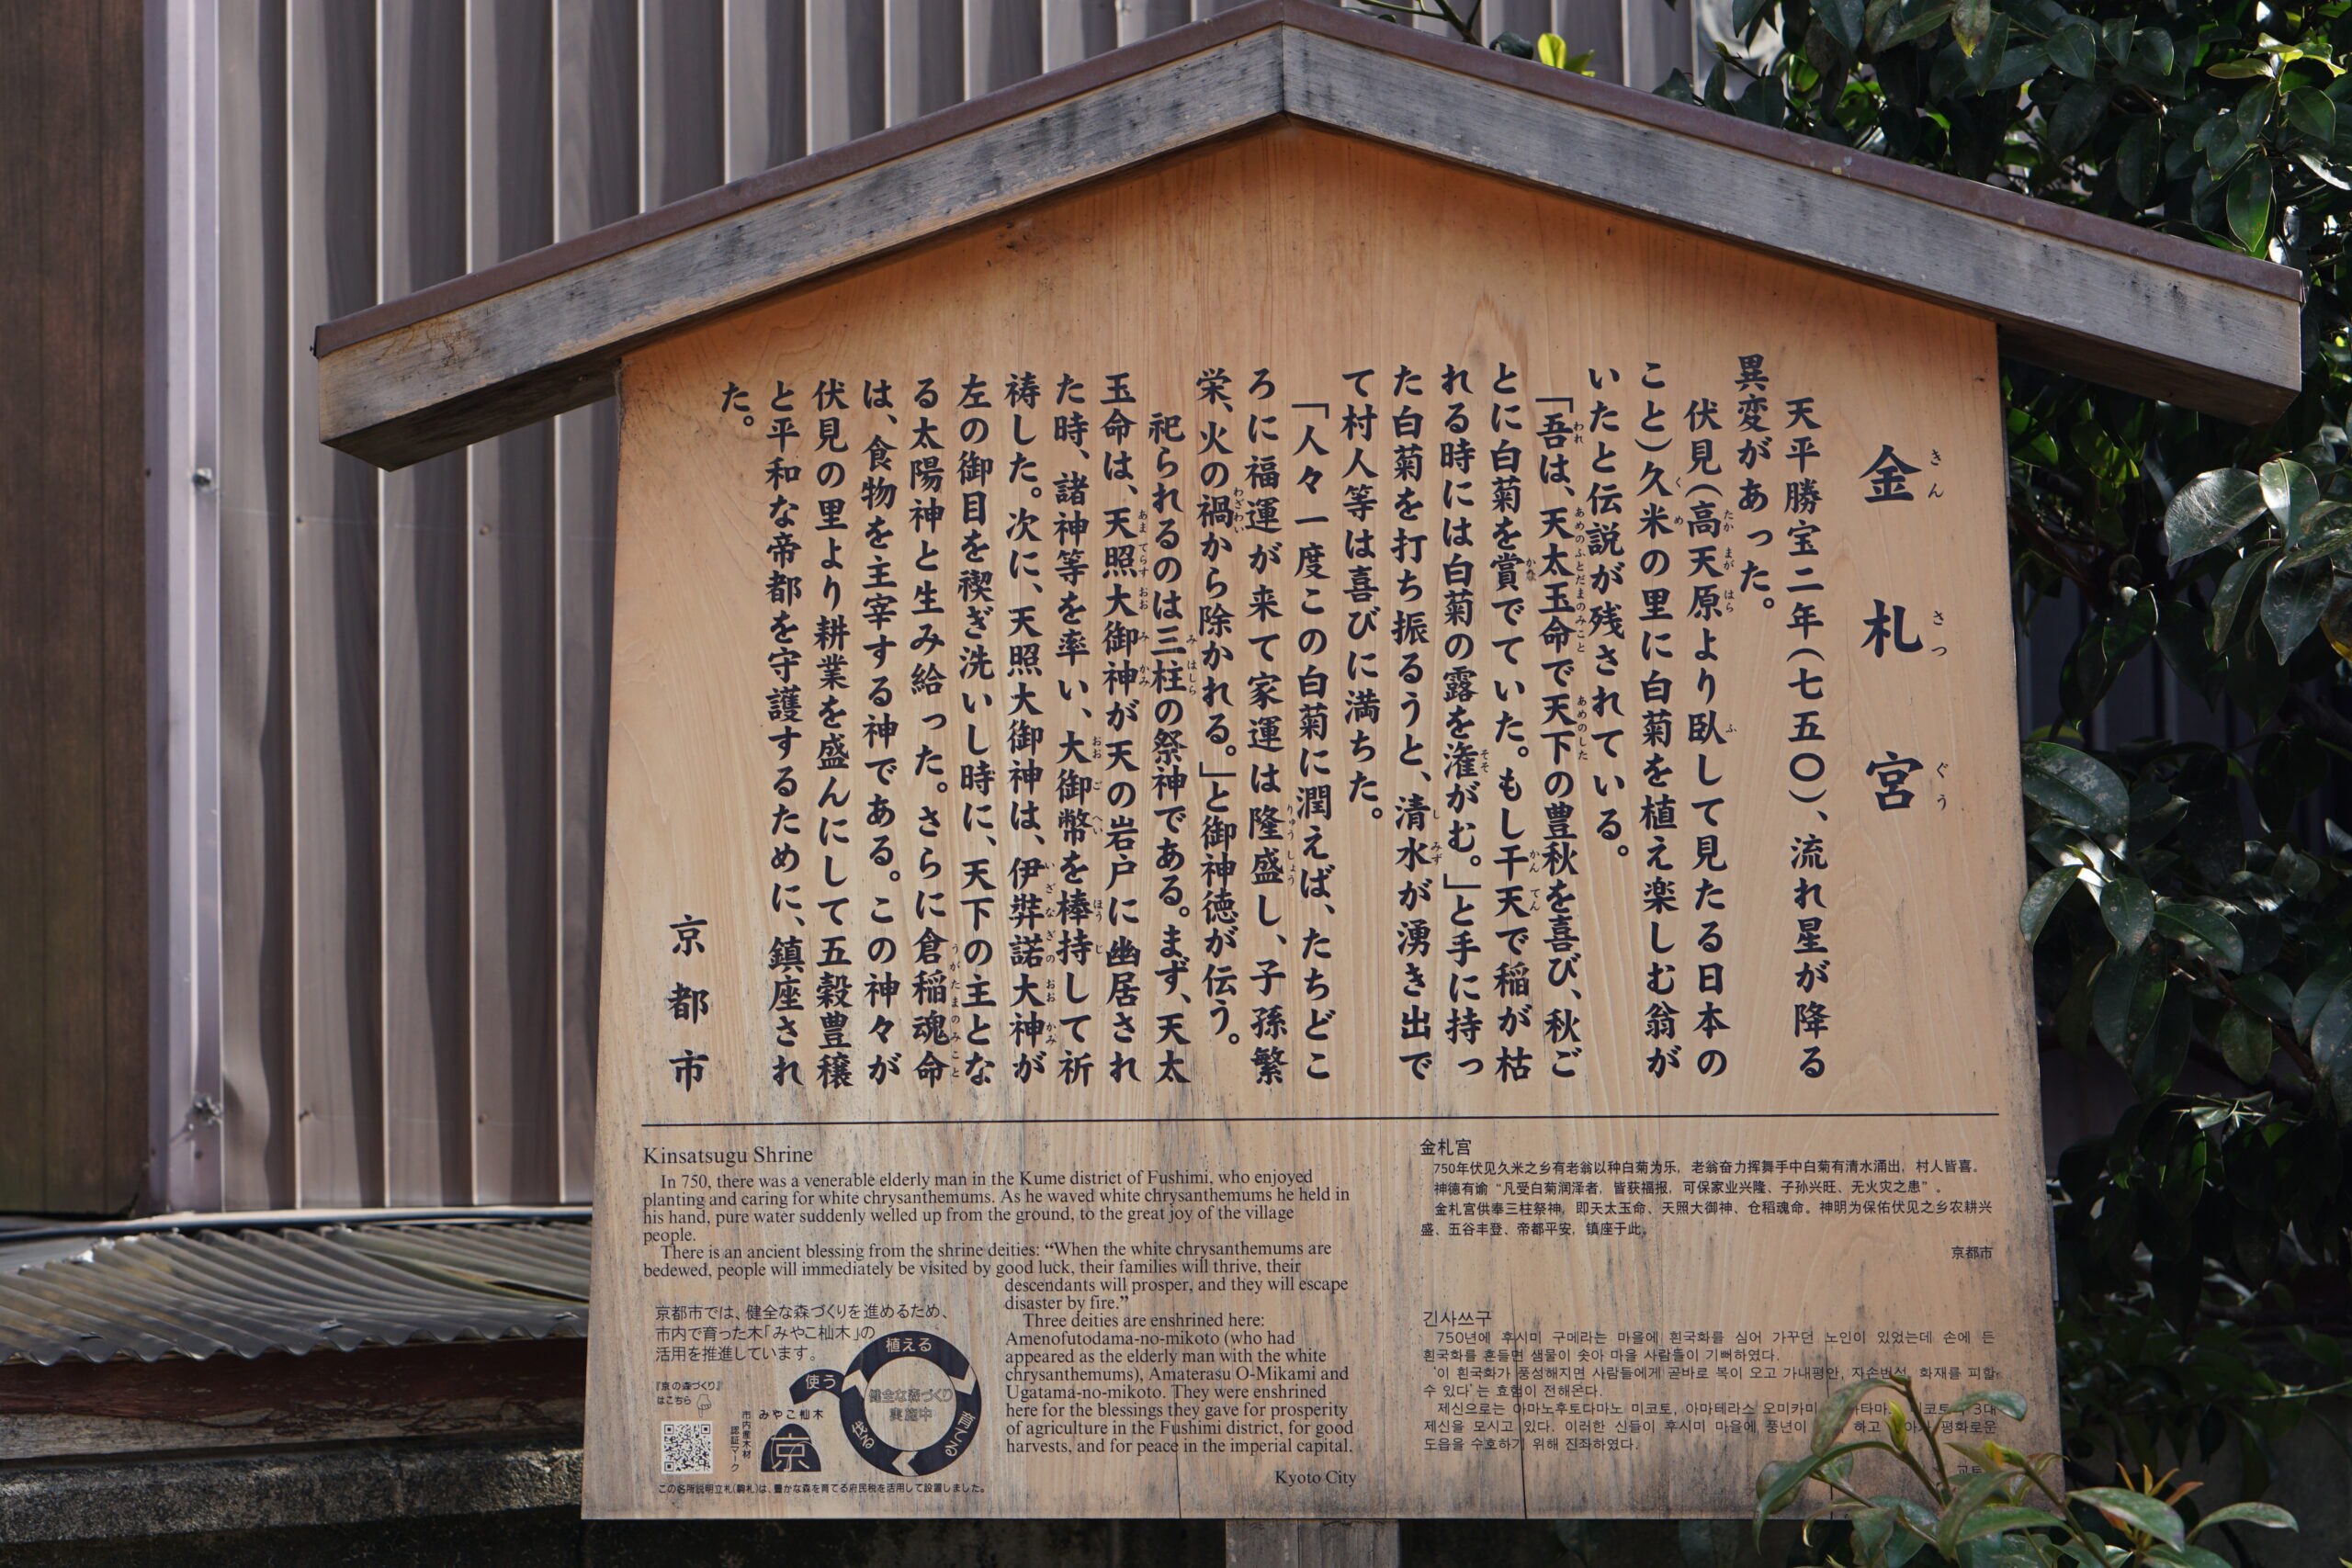 金札宮
きんさつぐう
天平勝宝二年(七五〇)、流れ星が降る
異変があった。
伏見(高天原より臥して見たる日本の
こと)久米の里に白菊を植え楽しむ翁が
いたと伝説が残されている。
「吾は、天太玉命で天下の豊秋を喜び、秋ご
とに白菊を賞でていた。もし干天で稲が枯
れる時には白菊の露を潅がむ。」と手に持っ
た白菊を打ち振るうと、清水が湧き出で
て村人等は喜びに満ちた。
「人々一度この白菊に潤えば、たちどこ
ろに福運が来て家運は隆盛し、子孫繁
栄、火の禍から除かれる。」と御神徳が伝う。
祀られるのは三柱の祭神である。まず、天太
玉命は、天照大御神が天の岩戸に幽居され
た時、諸神等を率い、大御幣を棒持して祈
祷した。次に、天照大御神は、伊弉諾大神が
左の御目を禊ぎ洗いし時に、天下の主とな
る太陽神と生み給った。さらに倉稲魂命
は、食物を主宰する神である。この神々が
伏見の里より耕業を盛んにして五穀豊穣
と平和な帝都を守護するために、鎮座され
た。
京都市
Kinsatsugu Shrine
In 750, there was a venerable elderly man in the Kume district of Fushimi, who enjoyed
planting and caring for white chrysanthemums. As he waved white chrysanthemums he held in
his hand, pure water suddenly welled up from the ground, to the great joy of the village
people.
There is an ancient blessing from the shrine deities: “When the white chrysanthemums are
bedewed, people will immediately be visited by good luck, their families will thrive, their
descendants will prosper, and they will escape
disaster by fire.”
Three deities are enshrined here:
Amenofutodama-no-mikoto (who had
appeared as the elderly man with the white
chrysanthemums), Amaterasu O-Mikami and
Ugatama-no-mikoto. They were enshrined
here for the blessings they gave for prosperity
of agriculture in the Fushimi district, for good
harvests, and for peace in the imperial capital.
Kyoto City
京都市では、健全な森づくりを進めるため、
市内で育った木「みやこ杣木」の
活用を推進しています。
『京の森づくり』
はこちら
市内産木材
認証マーク
みやこ杣木
京
植える
育てる
伐る
使う
健全な森づくり
実施中
この名所説明立札(駒札)は、豊かな森を育てる府民税を活用して設置しました。
金札宫
750年伏见久米之乡有老翁以种白菊为乐，老翁奋力挥舞手中白菊有清水涌出，村人皆喜。
神德有谕“凡受白菊润泽者，皆获福报，可保家业兴隆、子孙兴旺、无火灾之患”。
金札宫供奉三柱祭神，即天太玉命、天照大御神、仓稻魂命。神明为保佑伏见之乡农耕兴
盛、五谷丰登、帝都平安，镇座于此。
京都市
긴사쓰구
750년에 후시미 구메라는 마을에 흰국화를 심어 가꾸던 노인이 있었는데 손에 든
흰국화를 흔들면 샘물이 솟아 마을 사람들이 기뻐하였다.
‘이 흰국화가 풍성해지면 사람들에게 곧바로 복이 오고 가내평안, 자손번성, 화재를 피할
수 있다’는 효험이 전해온다.
제신으로는 아마노후토다마노 미코토, 아마테라스 오미카미 3대
제신을 모시고 있다. 이러한 신들이 후시미 마을에 풍년이 하고 평화로운
도읍을 수호하기 위해 진좌하였다.